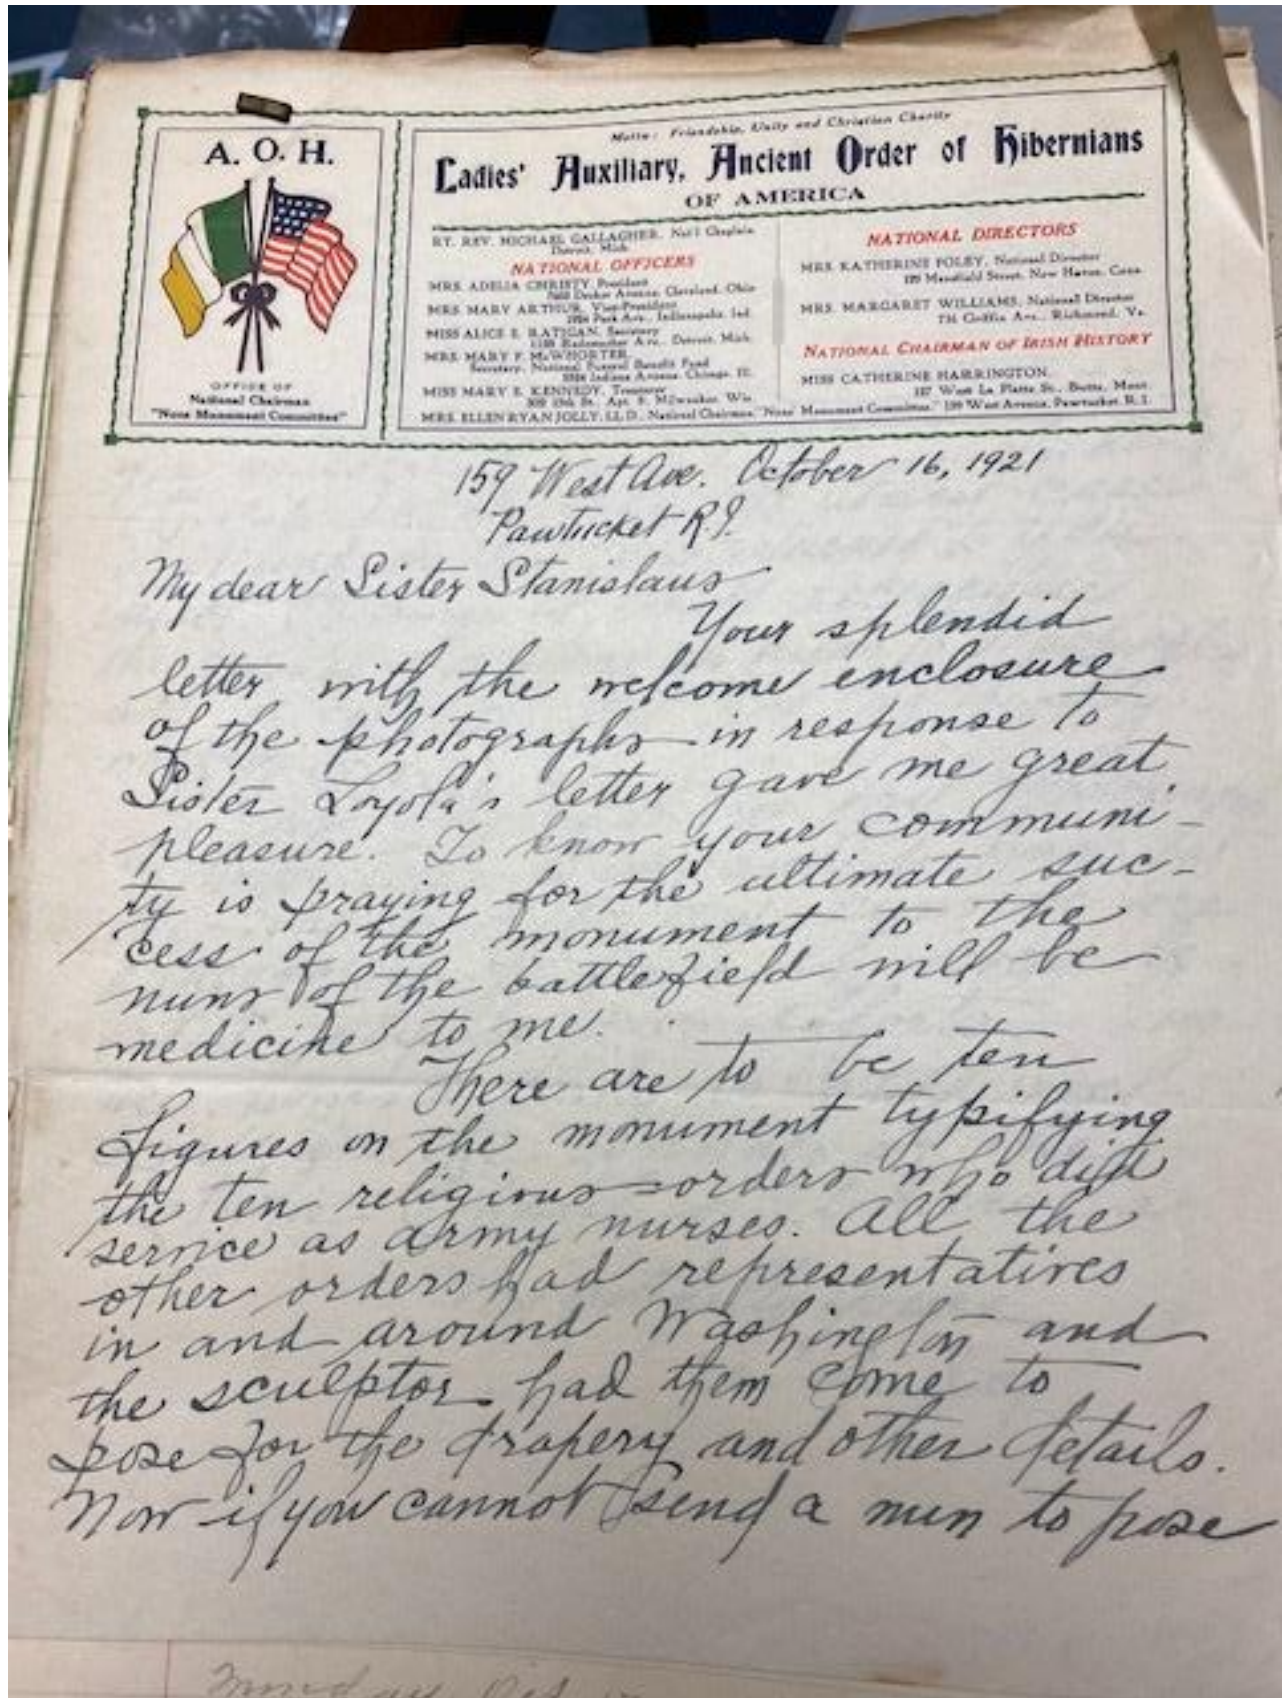 A. O. H.
OFFICE OF
National Chairman
"Nuns Monument Committee"
Motto: Friendship, Unity and Christian Charity
Ladies' Auxiliary, Ancient Order of Hibernians
OF AMERICA
RT. REV. MICHAEL GALLAGHER, Nat'l Chaplain
Detroit, Mich.
NATIONAL OFFICERS
MRS. ADELIA CHRISTY, President
Decker Avenue, Cleveland, Ohio
MRS. MARY ARTHUR, Vice-President
Park Ave., Indianapolis, Ind.
MISS ALICE E. RATIGAN, Secretary
Ave., Detroit, Mich.
MRS. MARY F. McWHORTER,
Secretary, National Funeral Benefit Fund
Indiana Avenue, Chicago, Ill.
MISS MARY E. KENNEDY, Treasurer
St., Apt. Milwaukee, Wis.
MRS. ELLEN RYAN JOLLY, LL. D., National Chairman, "Nuns Monument Committee," 159 West Avenue, Pawtucket, R. I.
NATIONAL DIRECTORS
MRS. KATHERINE FOLEY, National Director
Mansfield Street, New Haven, Conn.
MRS. MARGARET WILLIAMS, National Director
Griffin Ave., Richmond, Va.
NATIONAL CHAIRMAN OF IRISH HISTORY
MISS CATHERINE HARRINGTON,
West La Platte St., Butte, Mont.
159 West Ave. October 16, 1921
Pawtucket R.I.
My dear Sister Stanislaus
Your splendid
letter with the welcome enclosure
of the photographs in response to
Sister Loyola's letter gave me great
pleasure. To know your communi-
ty is praying for the ultimate suc-
cess of the monument to the
nuns of the battlefield will be
medicine to me.
There are to be ten
figures on the monument typifying
the ten religious orders who did
service as army nurses. All the
other orders had representatives
in and around Washington and
the sculptor had them come to
pose for the drapery and other details.
Now if you cannot send a nun to pose
Monday Oct